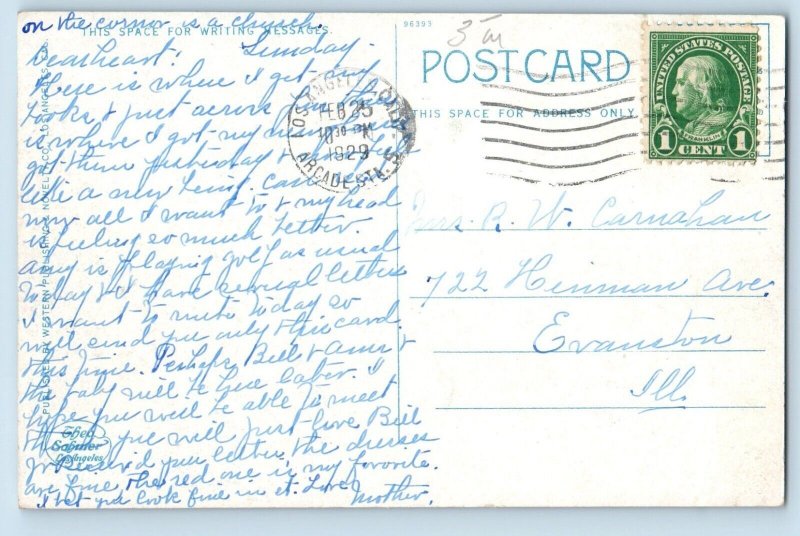 on the corner is a church.
THIS SPACE FOR WRITING MESSAGES.
Dearheart: Sunday.
Here is where I get my
books & just across from
is where I got my
got them yesterday &
like a new being. can
now all I want to & my head
is feeling so much better.
is playing golf as usual
today & I have several letters
I want to write today so
will send you only this card
this time. Perhaps Bill & &
the baby will be here later. I
hope you will be able to meet
you will just love Bill
Rec'd your letter. the dresses
are fine. The red one is my favorite.
I bet you look fine in it. Love
Mother.
PUBLISHED BY WESTERN PUBLISHING & NOVELTY CO., LOS ANGELES, CAL.
Theo
Sohmer
Los Angeles
96393
POST CARD
THIS SPACE FOR ADDRESS ONLY
LOS ANGELES
FEB 25
10 30
1929
ARCADE STA.
UNITED STATES POSTAGE
FRANKLIN
1 CENT 1
Mrs. R. W. Carnahan
722 Hinman Ave.
Evanston
Ill.